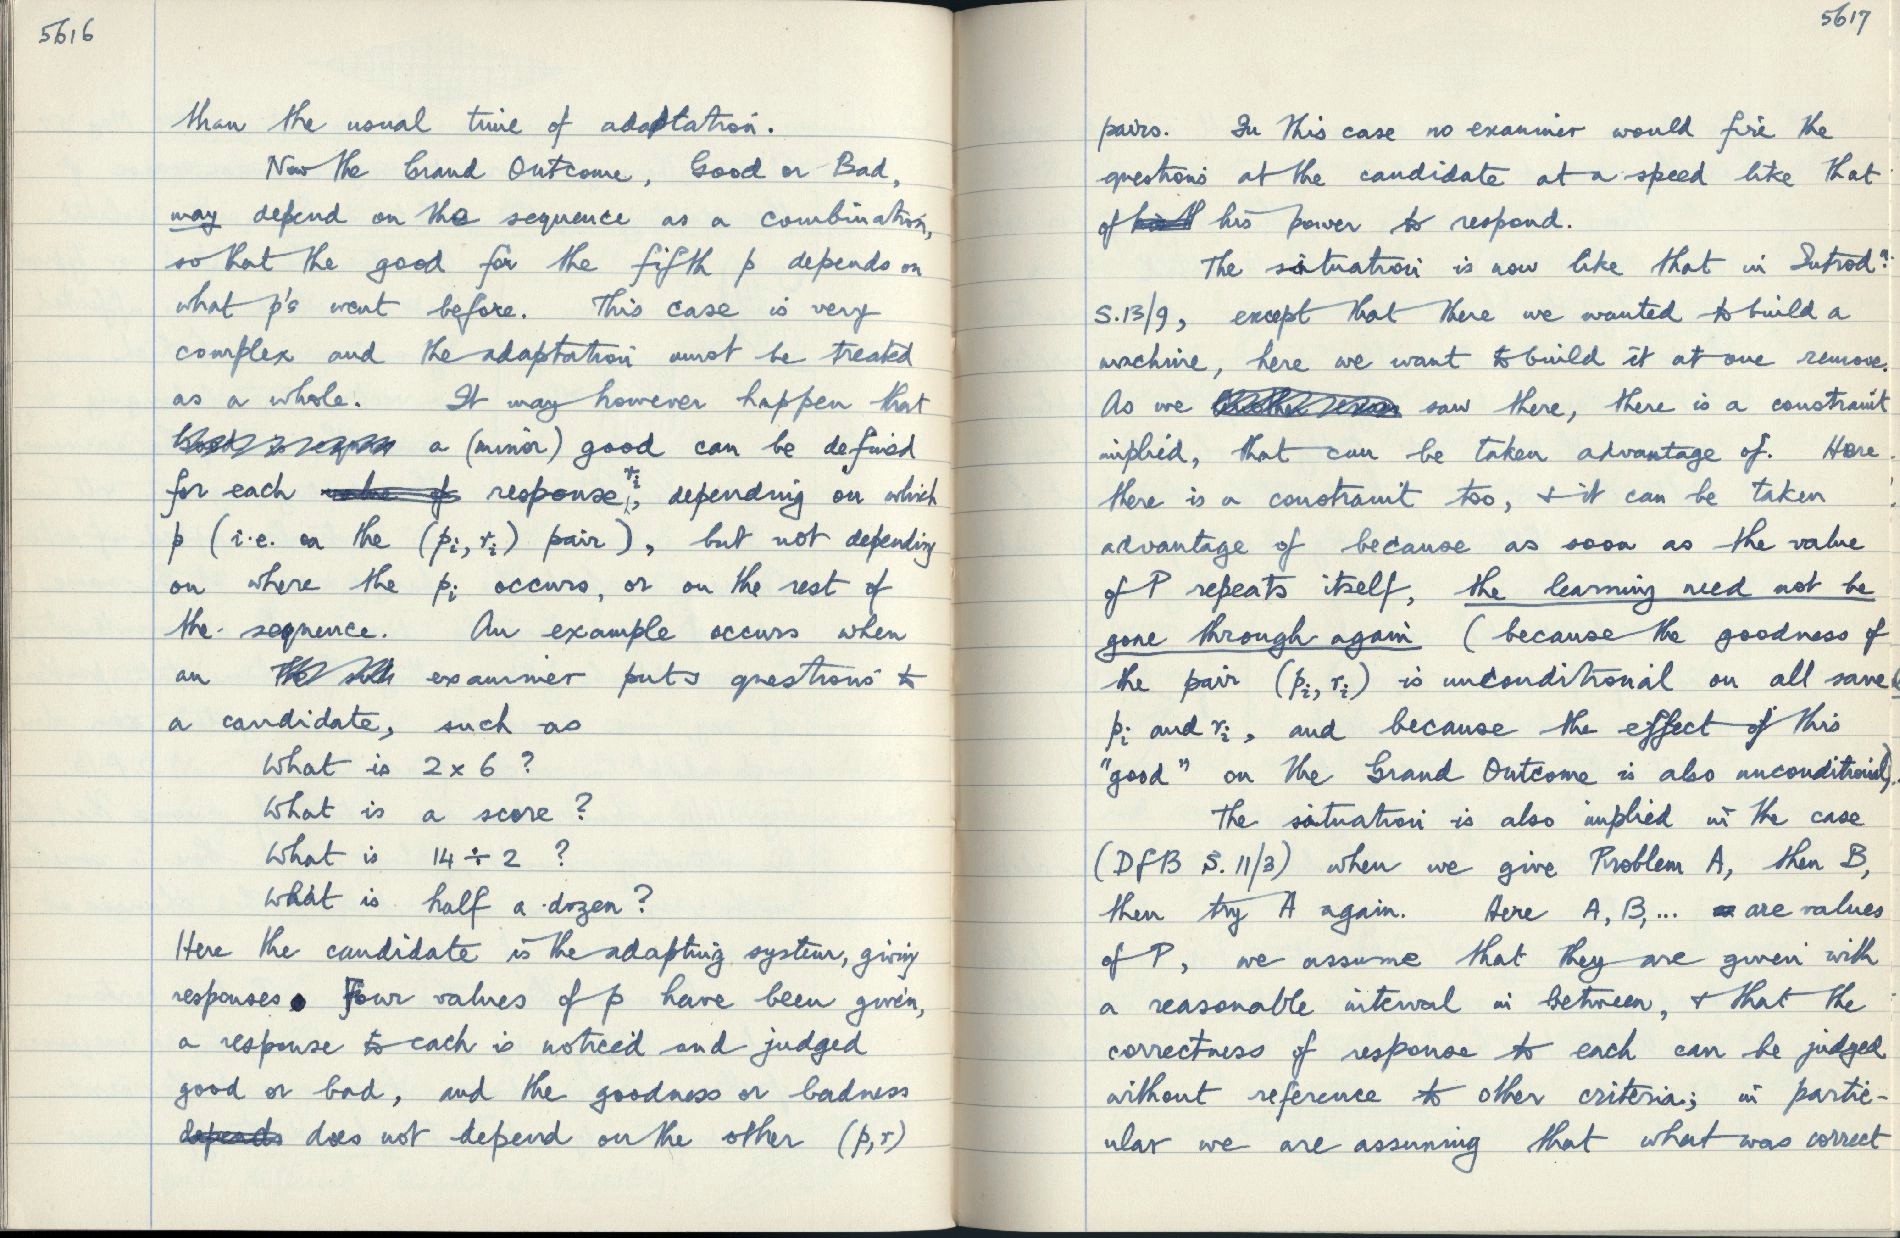 5616
than the usual time of adaptation.
Now the Grand Outcome, Good or Bad,
may depend on the sequence as a combination,
so that the good for the fifth p depends on
what p's went before. This case is very
complex and the adaptation must be treated
as a whole. It may however happen that
a (minor) good can be defined
for each value of response rᵢ, depending on which
p (i.e. on the (pᵢ, rᵢ) pair), but not depending
on where the pᵢ occurs, or on the rest of
the sequence. An example occurs when
an examiner puts questions to
a candidate, such as
What is 2 x 6 ?
What is a score ?
What is 14 ÷ 2 ?
What is half a dozen ?
Here the candidate is the adapting system, giving
responses. Four values of p have been given,
a response to each is noticed and judged
good or bad, and the goodness or badness
depends does not depend on the other (p, r)
5617
pairs. In this case no examiner would fire the
questions at the candidate at a speed like that
of his power to respond.
The situation is now like that in Introdⁿ.
S.13/9, except that there we wanted to build a
machine, here we want to build it at one remove.
As we saw there, there is a constraint
implied, that can be taken advantage of. Here
there is a constraint too, & it can be taken
advantage of because as soon as the value
of P repeats itself, the learning need not be
gone through again (because the goodness of
the pair (pᵢ, rᵢ) is unconditional on all save
pᵢ and rᵢ, and because the effect of this
"good" on the Grand Outcome is also unconditional).
The situation is also implied in the case
(DfB S. 11/3) when we give Problem A, then B,
then try A again. Here A, B, ... are values
of P, we assume that they are given with
a reasonable interval in between, & that the
correctness of response to each can be judged
without reference to other criteria; in partic-
ular we are assuming that what was correct